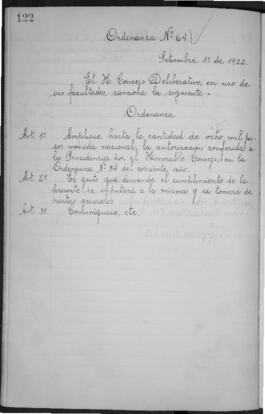 122
Ordenanza Nº 64
Setiembre 1º de 1922.
El H. Consejo Deliberativo, en uso de
sus facultades sanciona la siguiente -
Ordenanza
Art. 1º Amplíase hasta la cantidad de ocho mil pe-
sos moneda nacional, la autorización conferida a
la Presidencia por el Honorable Consejo, en la
Ordenanza Nº 34 del corriente año.
Art. 2º El gasto que demande el cumplimiento de la
presente, se imputará a la misma y se tomará de
rentas generales.
Art. 3º Comuníquese, etc.